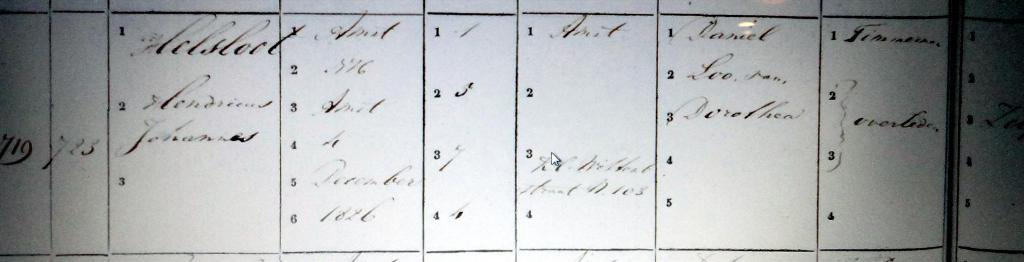 719 723
1 Holsloot
2 Hendricus
Johannes
3
1 Amst
2 NH
3 Amst
4 4
5 December
6 1826
1 1
2 5
3 7
4 4
1 Amst
2
3
straat N. 103
4
1 Daniel
2 Loo, van,
3 Dorothea
4
5
1 Timmerm.
2
overleden
3
4
1
2
3
4
5